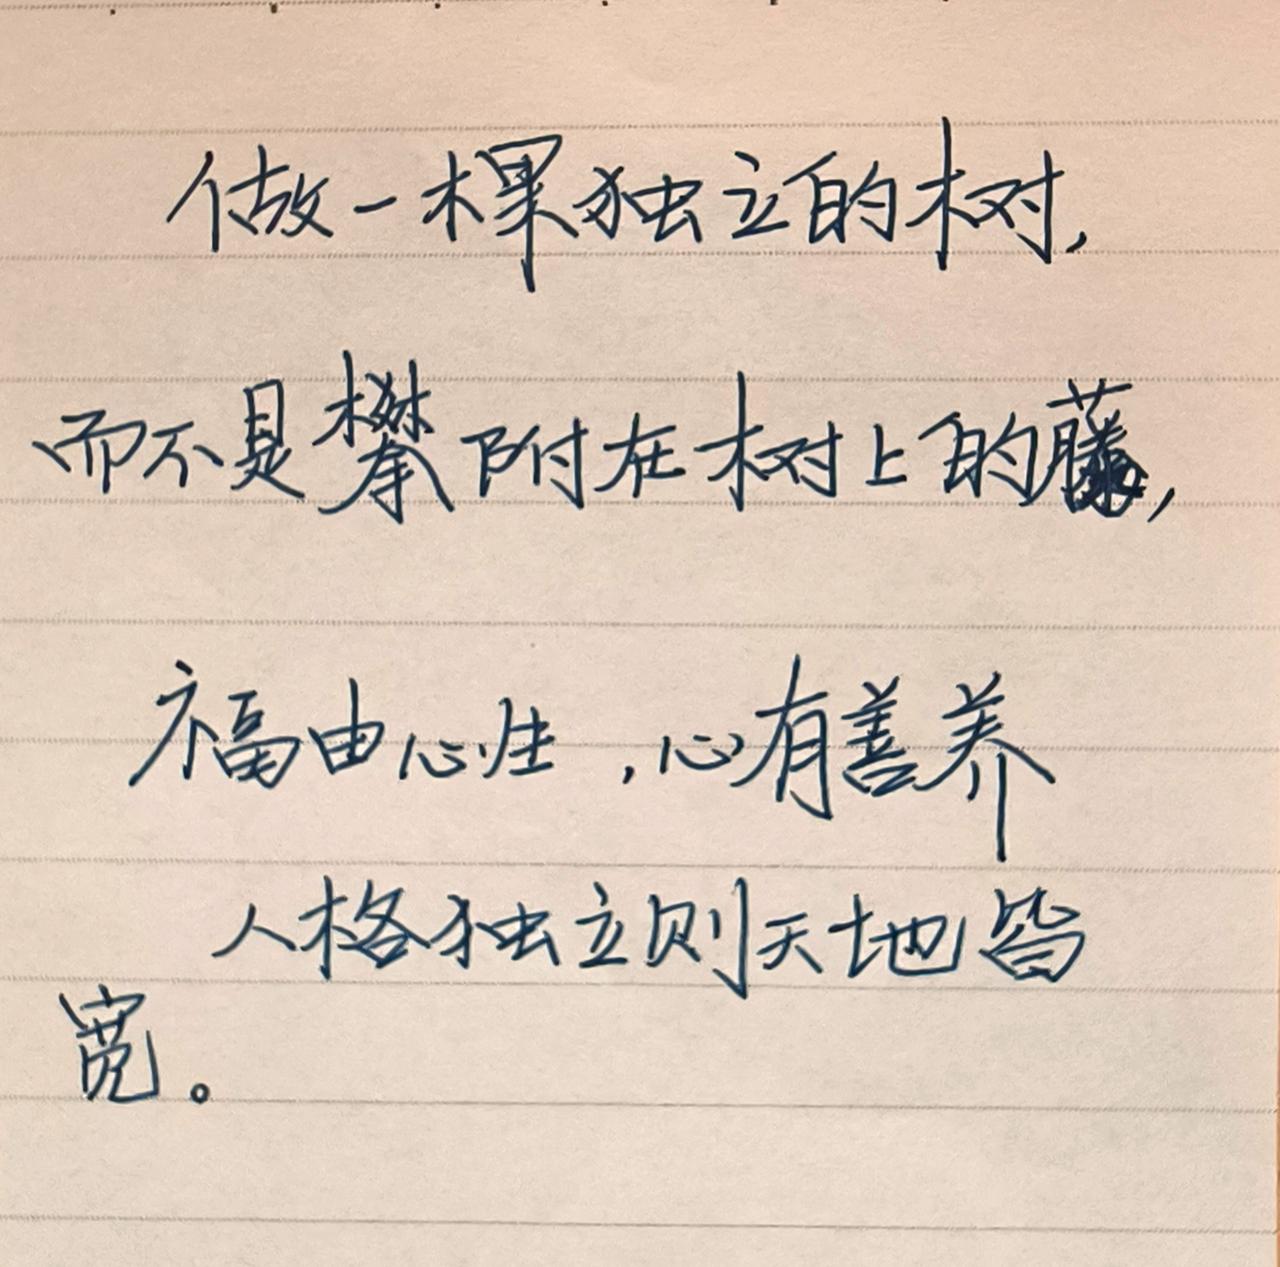 做一棵独立的树,
而不是攀附在树上的藤,
福由心生,心有善养
人格独立则天地皆
宽。